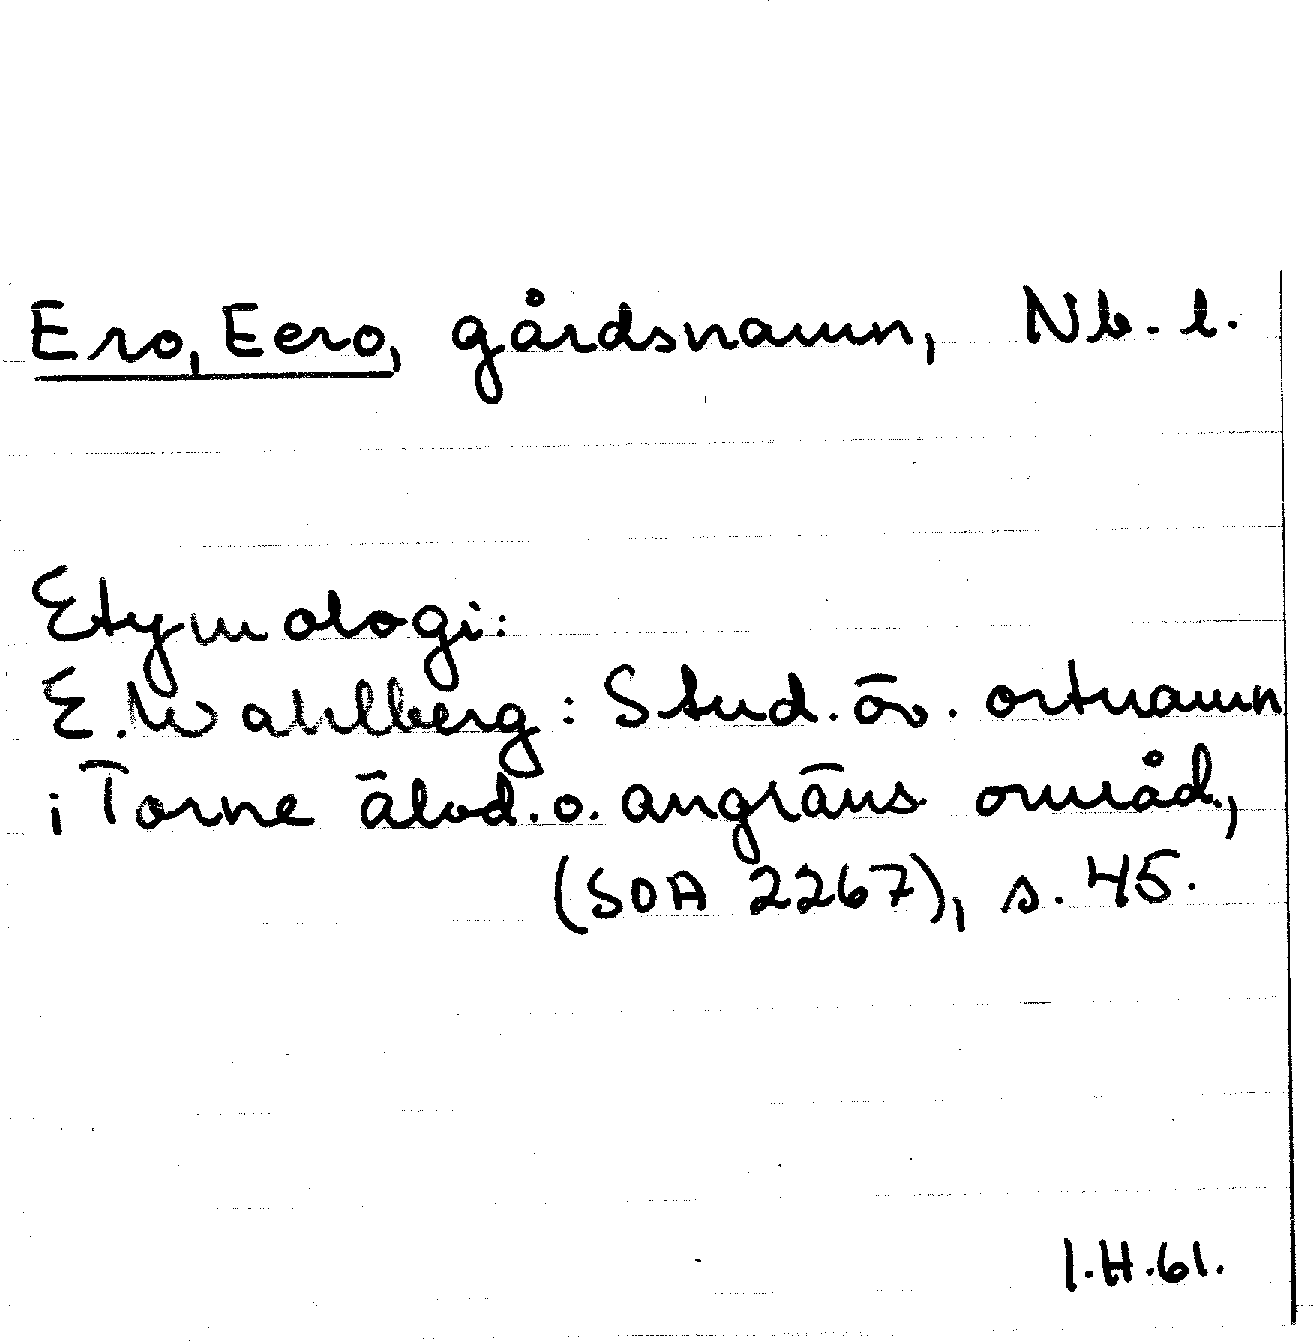 Ero, Eero, gårdsnamn, Nb. l.
Etymologi:
E. Wahlberg: Stud. öv. ortnamn
i Torne älvd. o. angräns. områd.,
(SOA 2267), s. 45.
I.H.61.